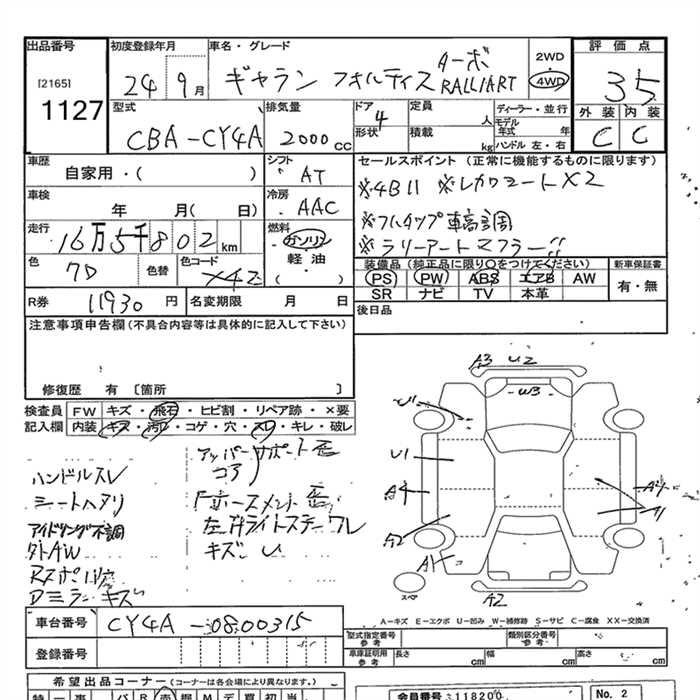 出品番号 初度登録年月 車名・グレード 2WD 評価点
[2165] 24 9月 ギャラン フォルティス ターボ RALLIART 4WD 3.5
1127 型式 排気量 ドア 4 定員 人 ディーラー・並行 外装 内装
CBA-CY4A 2000cc 形状 積載 kg モデル年式 年 C C
ハンドル 左・右
車歴 シフト セールスポイント (正常に機能するものに限ります)
自家用・( ) AT ※4B11 ※レカロシート×2
車検 冷房
年 月( 日) AAC ※フルタップ車高調
走行 燃料
16万5千802km ガソリン ※ラリーアートマフラー!!
色 色替 色コード 軽油 装備品 (純正品に限り○をつけてください) 新車保証書
( ) PS PW ABS エアB AW 有・無
X42 SR ナビ TV 本革
R券 11930円 名変期限 月 日 後日品
注意事項申告欄(不具合内容等は具体的に記入して下さい)
修復歴 有 〔箇所 〕
検査員 FW キズ・飛石・ヒビ割・リペア跡・×要
記入欄 内装 キズ・汚レ・コゲ・穴・スレ・キレ・破レ
ハンドルスレ
シートヘタリ
アイドリング不調
外AW
アッパーサポート歪
コア
キズ U
ドミラーキズ
A3 U2
W3
U1
U1
A4
A2
A1
A2
スペア
A-キズ E-エクボ U-凹み W-補修跡 S-サビ C-腐食 XX-交換済
車台番号 CY4A-0800315
型式指定番号 参考 類別区分番号 参考
登録番号 車庫証明用 参考 長さ cm 幅 cm 高さ cm
希望出品コーナー(コーナーは各会場により異なります。)
会員番号 S118200 No. 2